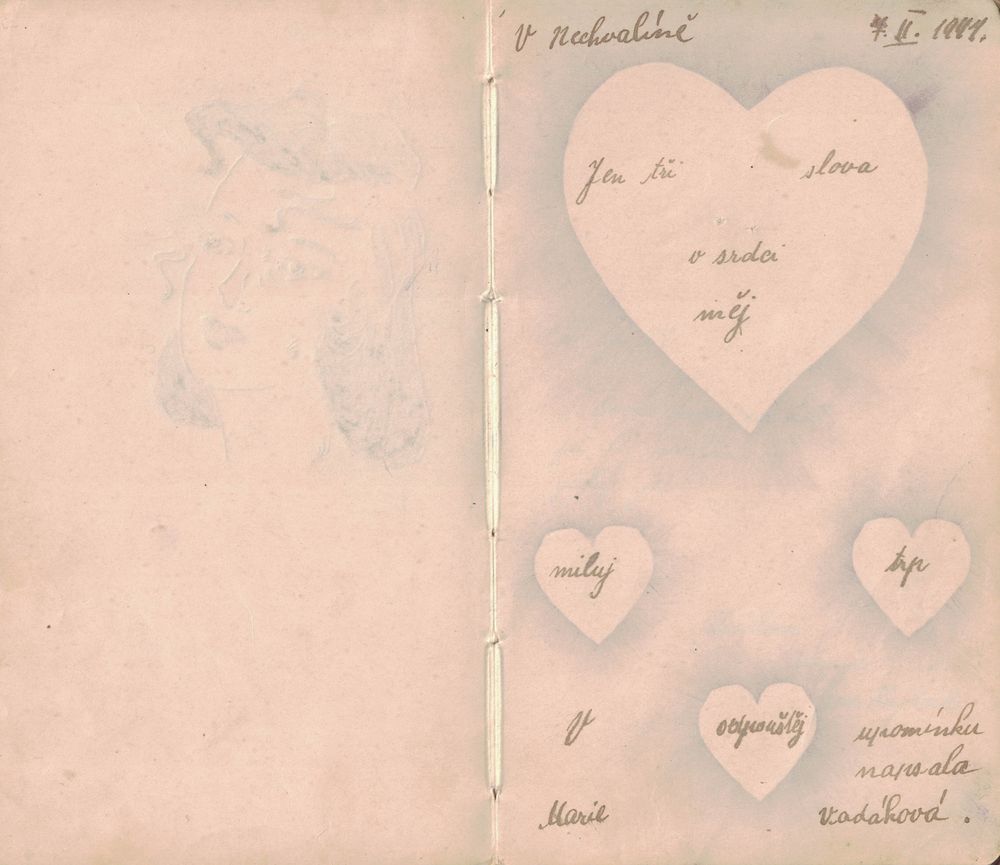 V Nechvalíně 7. II. 1941.
Jen tři slova
v srdci
měj
miluj trp
odpouštěj
V upomínku
napsala
Marie Vadáková.